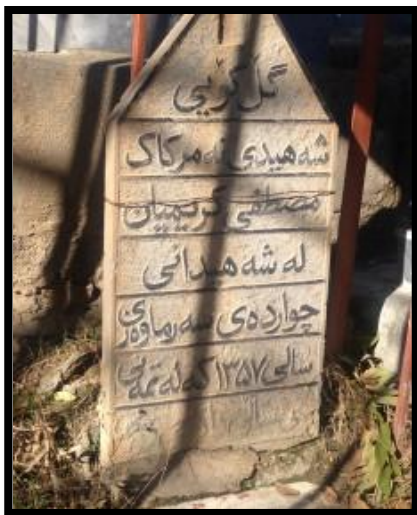 گڵکۆیی
شه‌هیدی نه‌مر کاک
مصطفی کریمیان
له شه‌هیدانی
چوارده‌ی سه‌رماوه‌زی
سالی ۱۳۵۷ که له ته‌مه‌نی